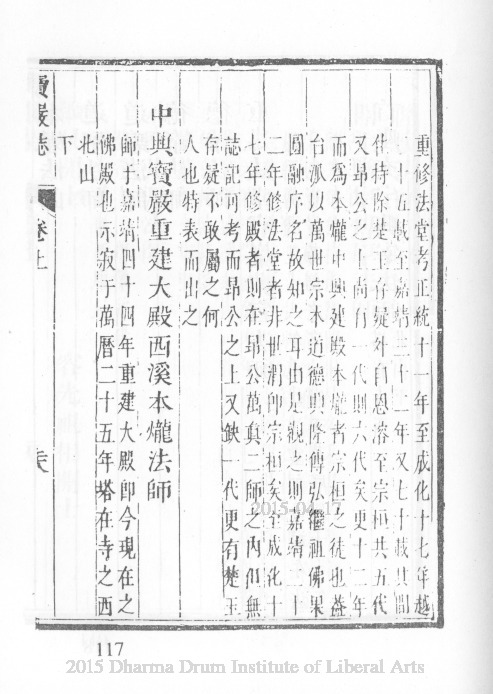 重修法堂考正統十一年至成化十七年越
二十五載至嘉靖三十二年又七十載其間
住持除楚王存疑外自恩溶至宗桓共五代
又昻公之上尚有一代則六代矣更十二年
而爲本爖中興建殿本爖者宗桓之徒也葢
台泒以萬世宗本道德興隆傳弘繼祖佛果
圓融序名故知之耳由是觀之則嘉靖三十
二年修法堂者非世渭師宗桓矣至成化十
七年修殿者則在昻公萬真二師之内但無
誌記可考而昻公之上又鈌一代更有楚王
存疑不敢屬之何
人也特表而出之
中興寶嚴重建大殿西溪本爖法師
師于嘉靖四十四年重建大殿卽今現在之
佛殿也示寂于萬曆二十五年塔在寺之西
北山
下
寶嚴誌 卷上
117
2015-04-17
2015 Dharma Drum Institute of Liberal Arts